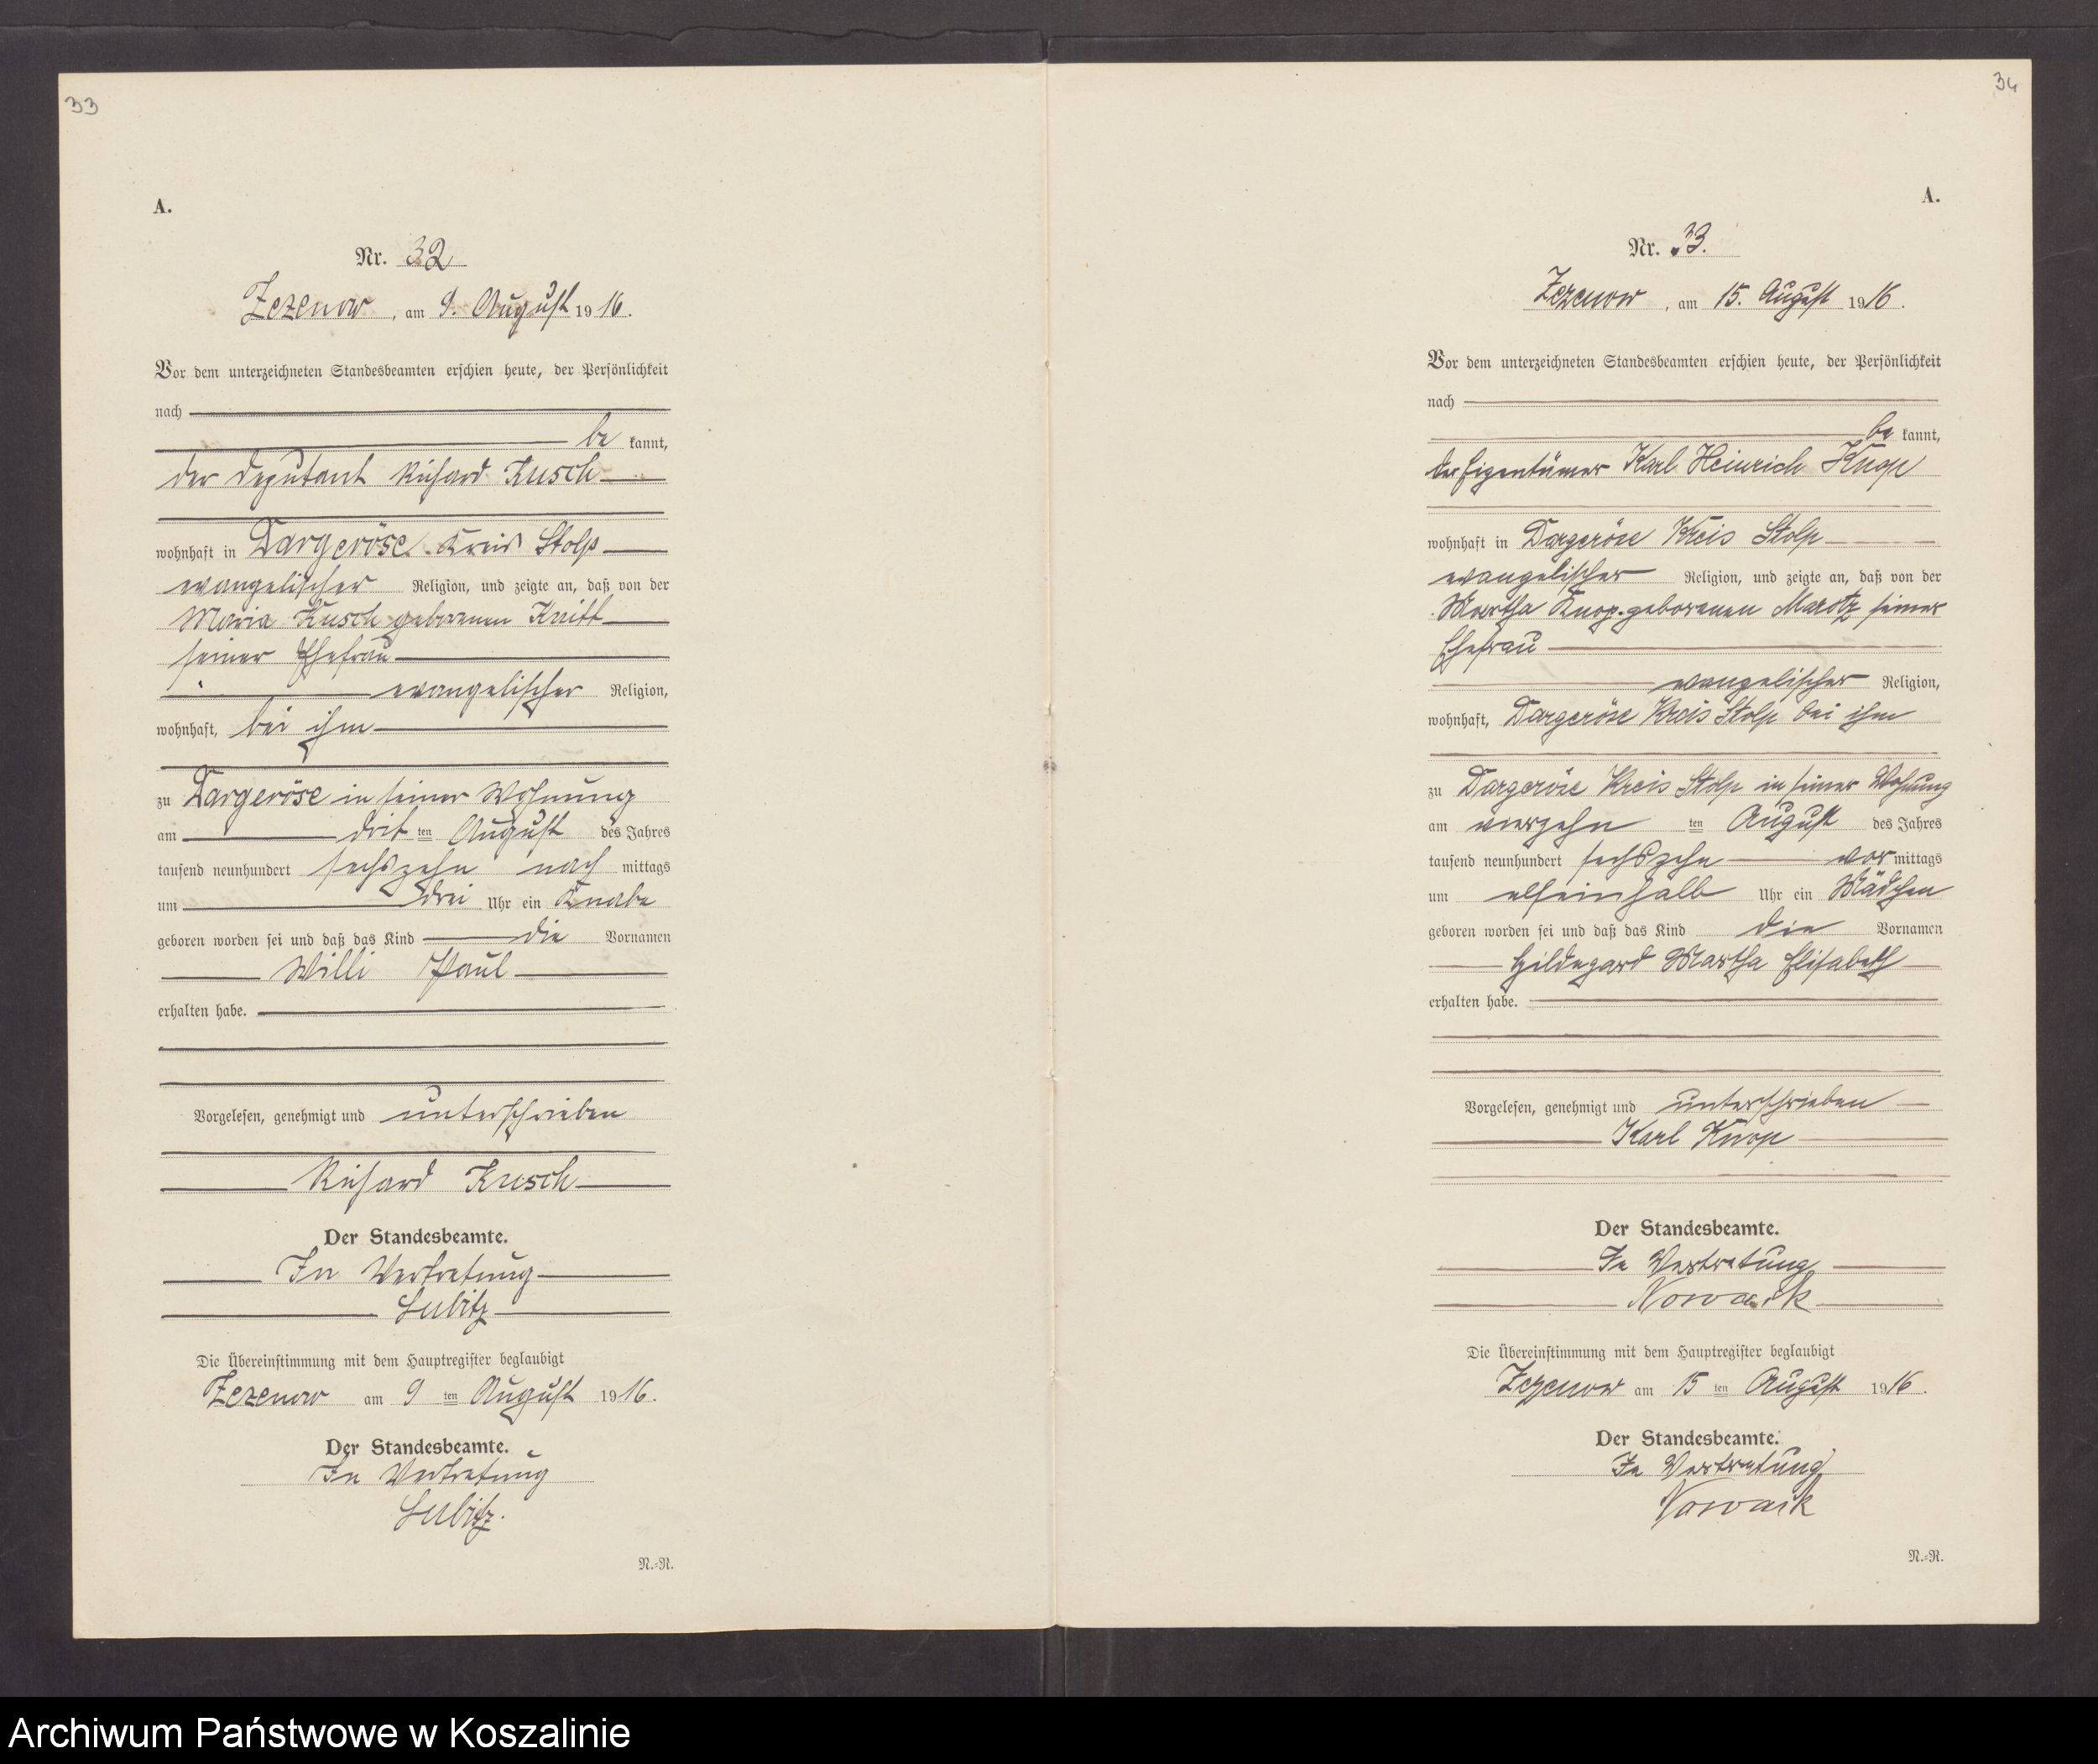 33
A.
Nr. 32
Zezenow, am 9. August 1916.
Vor dem unterzeichneten Standesbeamten erschien heute, der Persönlichkeit
nach
be kannt,
der Deputant Richard Kusch
wohnhaft in Dargeröse Kreis Stolp
evangelischer Religion, und zeigte an, daß von der
Maria Kusch geborenen
seiner Ehefrau
evangelischer Religion,
wohnhaft, bei ihm
zu Dargeröse in seiner Wohnung
am drit ten August des Jahres
tausend neunhundert sechszehn nach mittags
um drei Uhr ein Knabe
geboren worden sei und daß das Kind die Vornamen
Willi Paul
erhalten habe.
Vorgelesen, genehmigt und unterschrieben
Richard Kusch
Der Standesbeamte.
In Vertretung
Lubitz
Die Übereinstimmung mit dem Hauptregister beglaubigt
Zezenow am 9 ten August 1916.
Der Standesbeamte.
In Vertretung
Lubitz.
N.=R.
34
A.
Nr. 33.
Zezenow, am 15. August 1916.
Vor dem unterzeichneten Standesbeamten erschien heute, der Persönlichkeit
nach
be kannt,
der Eigentümer Karl Heinrich Knop
wohnhaft in Dargeröse Kreis Stolp
evangelischer Religion, und zeigte an, daß von der
Martha Knop geborenen Marotz seiner
Ehefrau
evangelischer Religion,
wohnhaft, Dargeröse Kreis Stolp bei ihm
zu Dargeröse Kreis Stolp in seiner Wohnung
am vierzehn ten August des Jahres
tausend neunhundert sechszehn vor mittags
um elfeinhalb Uhr ein Mädchen
geboren worden sei und daß das Kind die Vornamen
Hildegard Martha Elisabeth
erhalten habe.
Vorgelesen, genehmigt und unterschrieben
Karl Knop
Der Standesbeamte.
In Vertretung
Nowack
Die Übereinstimmung mit dem Hauptregister beglaubigt
Zezenow am 15 ten August 1916.
Der Standesbeamte.
In Vertretung
Nowack
N.=R.
Archiwum Państwowe w Koszalinie